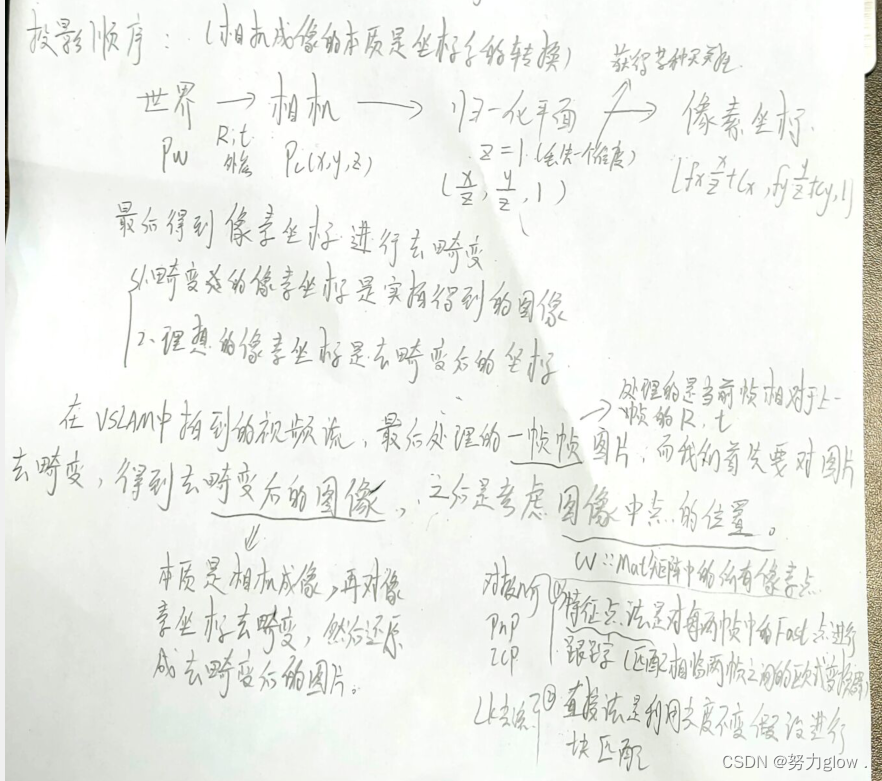 投影顺序：（相机成像的本质是坐标系的转换）
获得某种
世界 → 相机 → 归一化平面 → 像素坐标
Pw R,t 外参 Pc(x,y,z) z=1（丢失一个维度）
(x/z, y/z, 1) (fx x/z+cx, fy y/z+cy, 1)
最后得到像素坐标进行去畸变
1.畸变后的像素坐标是实拍得到的图像
2.理想的像素坐标是去畸变后的坐标
处理的是当前帧相对于上一
帧的R,t
在VSLAM中拍到的视频流，最后处理的一帧帧图片，而我们首先要对图片
去畸变，得到去畸变后的图像，之后是考虑图像中点的位置。
本质是相机成像，再对像
素坐标去畸变，然后还原
成去畸变后的图片。
CV::Mat矩阵中的所有像素点
对极几何
PnP
ICP
①特征点法是对每两帧中的Fast点进行
跟踪（匹配相临两帧之间的欧式变换
LK光流
②直接法是利用光度不变假设进行
块匹配
CSDN @努力glow .